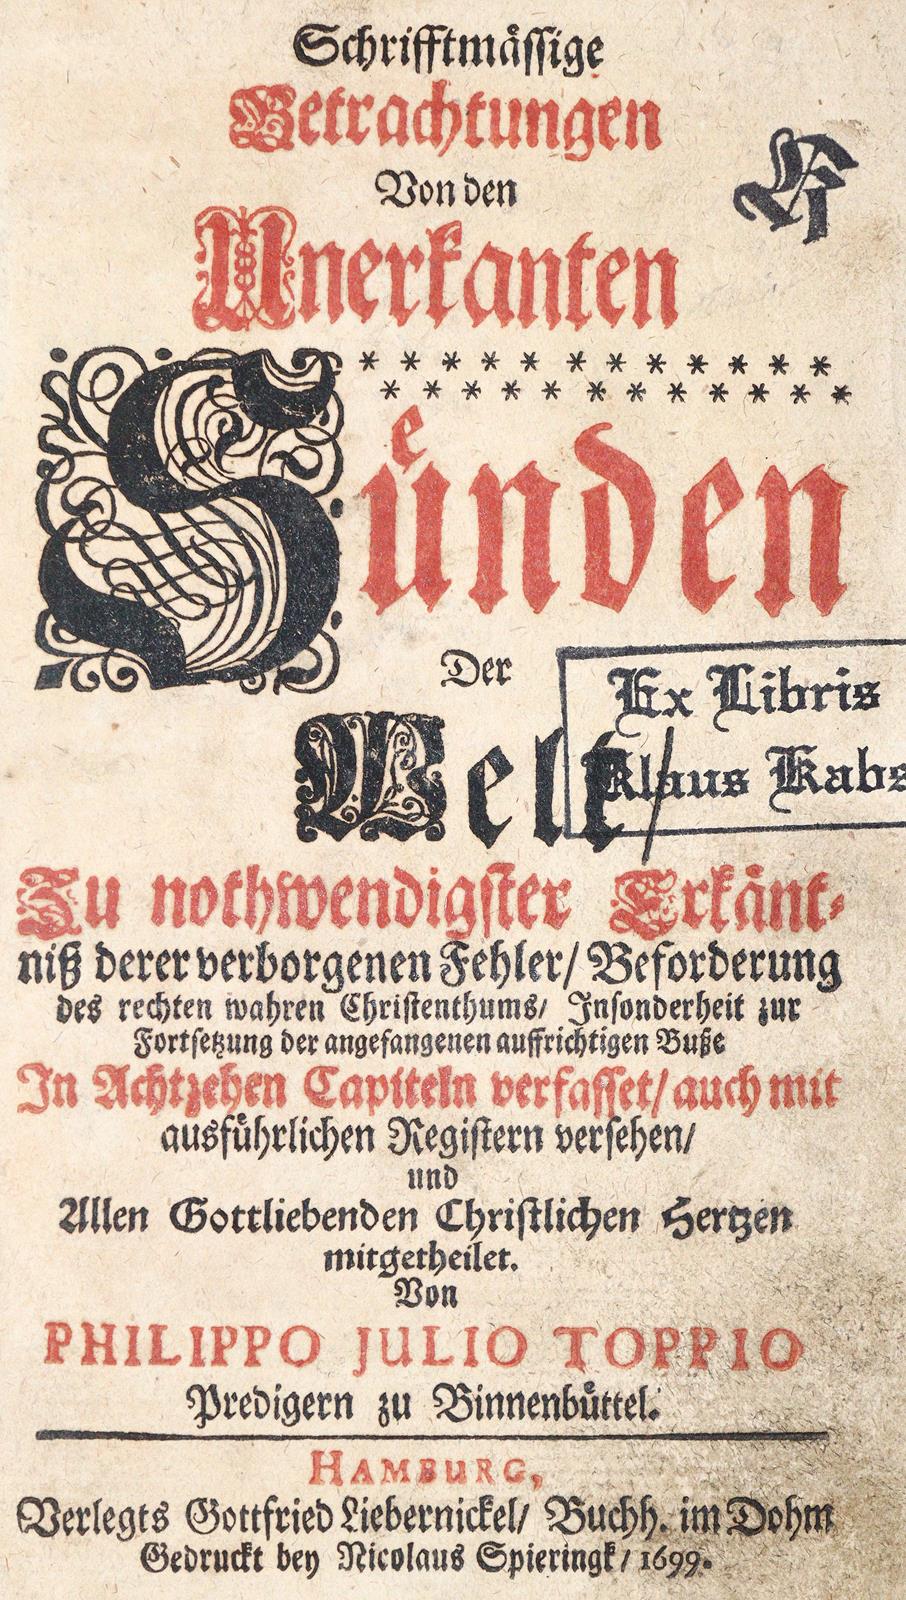 Schrifftmåssige
Betrachtungen
Von den
Unerkanten
* * * * * * * * * * * *
* * * * * * * * * * * *
Suͤnden
Der
Welt/
Ex Libris
Klaus Kabs
Zu nothwendigster Erkåntniß
derer verborgenen Fehler/ Beforderung
des rechten wahren Christenthums/ Insonderheit zur
Fortsetzung der angefangenen auffrichtigen Buße
In Achtzehen Capiteln verfasset/ auch mit
ausfuͤhrlichen Registern versehen/
und
Allen Gottliebenden Christlichen Hertzen
mitgetheilet.
Von
PHILIPPO JULIO TOPPIO
Predigern zu Binnenbuͤttel.
HAMBURG,
Verlegts Gottfried Liebernickel/ Buchh. im Dohm
Gedruckt bey Nicolaus Spieringk/ 1699.